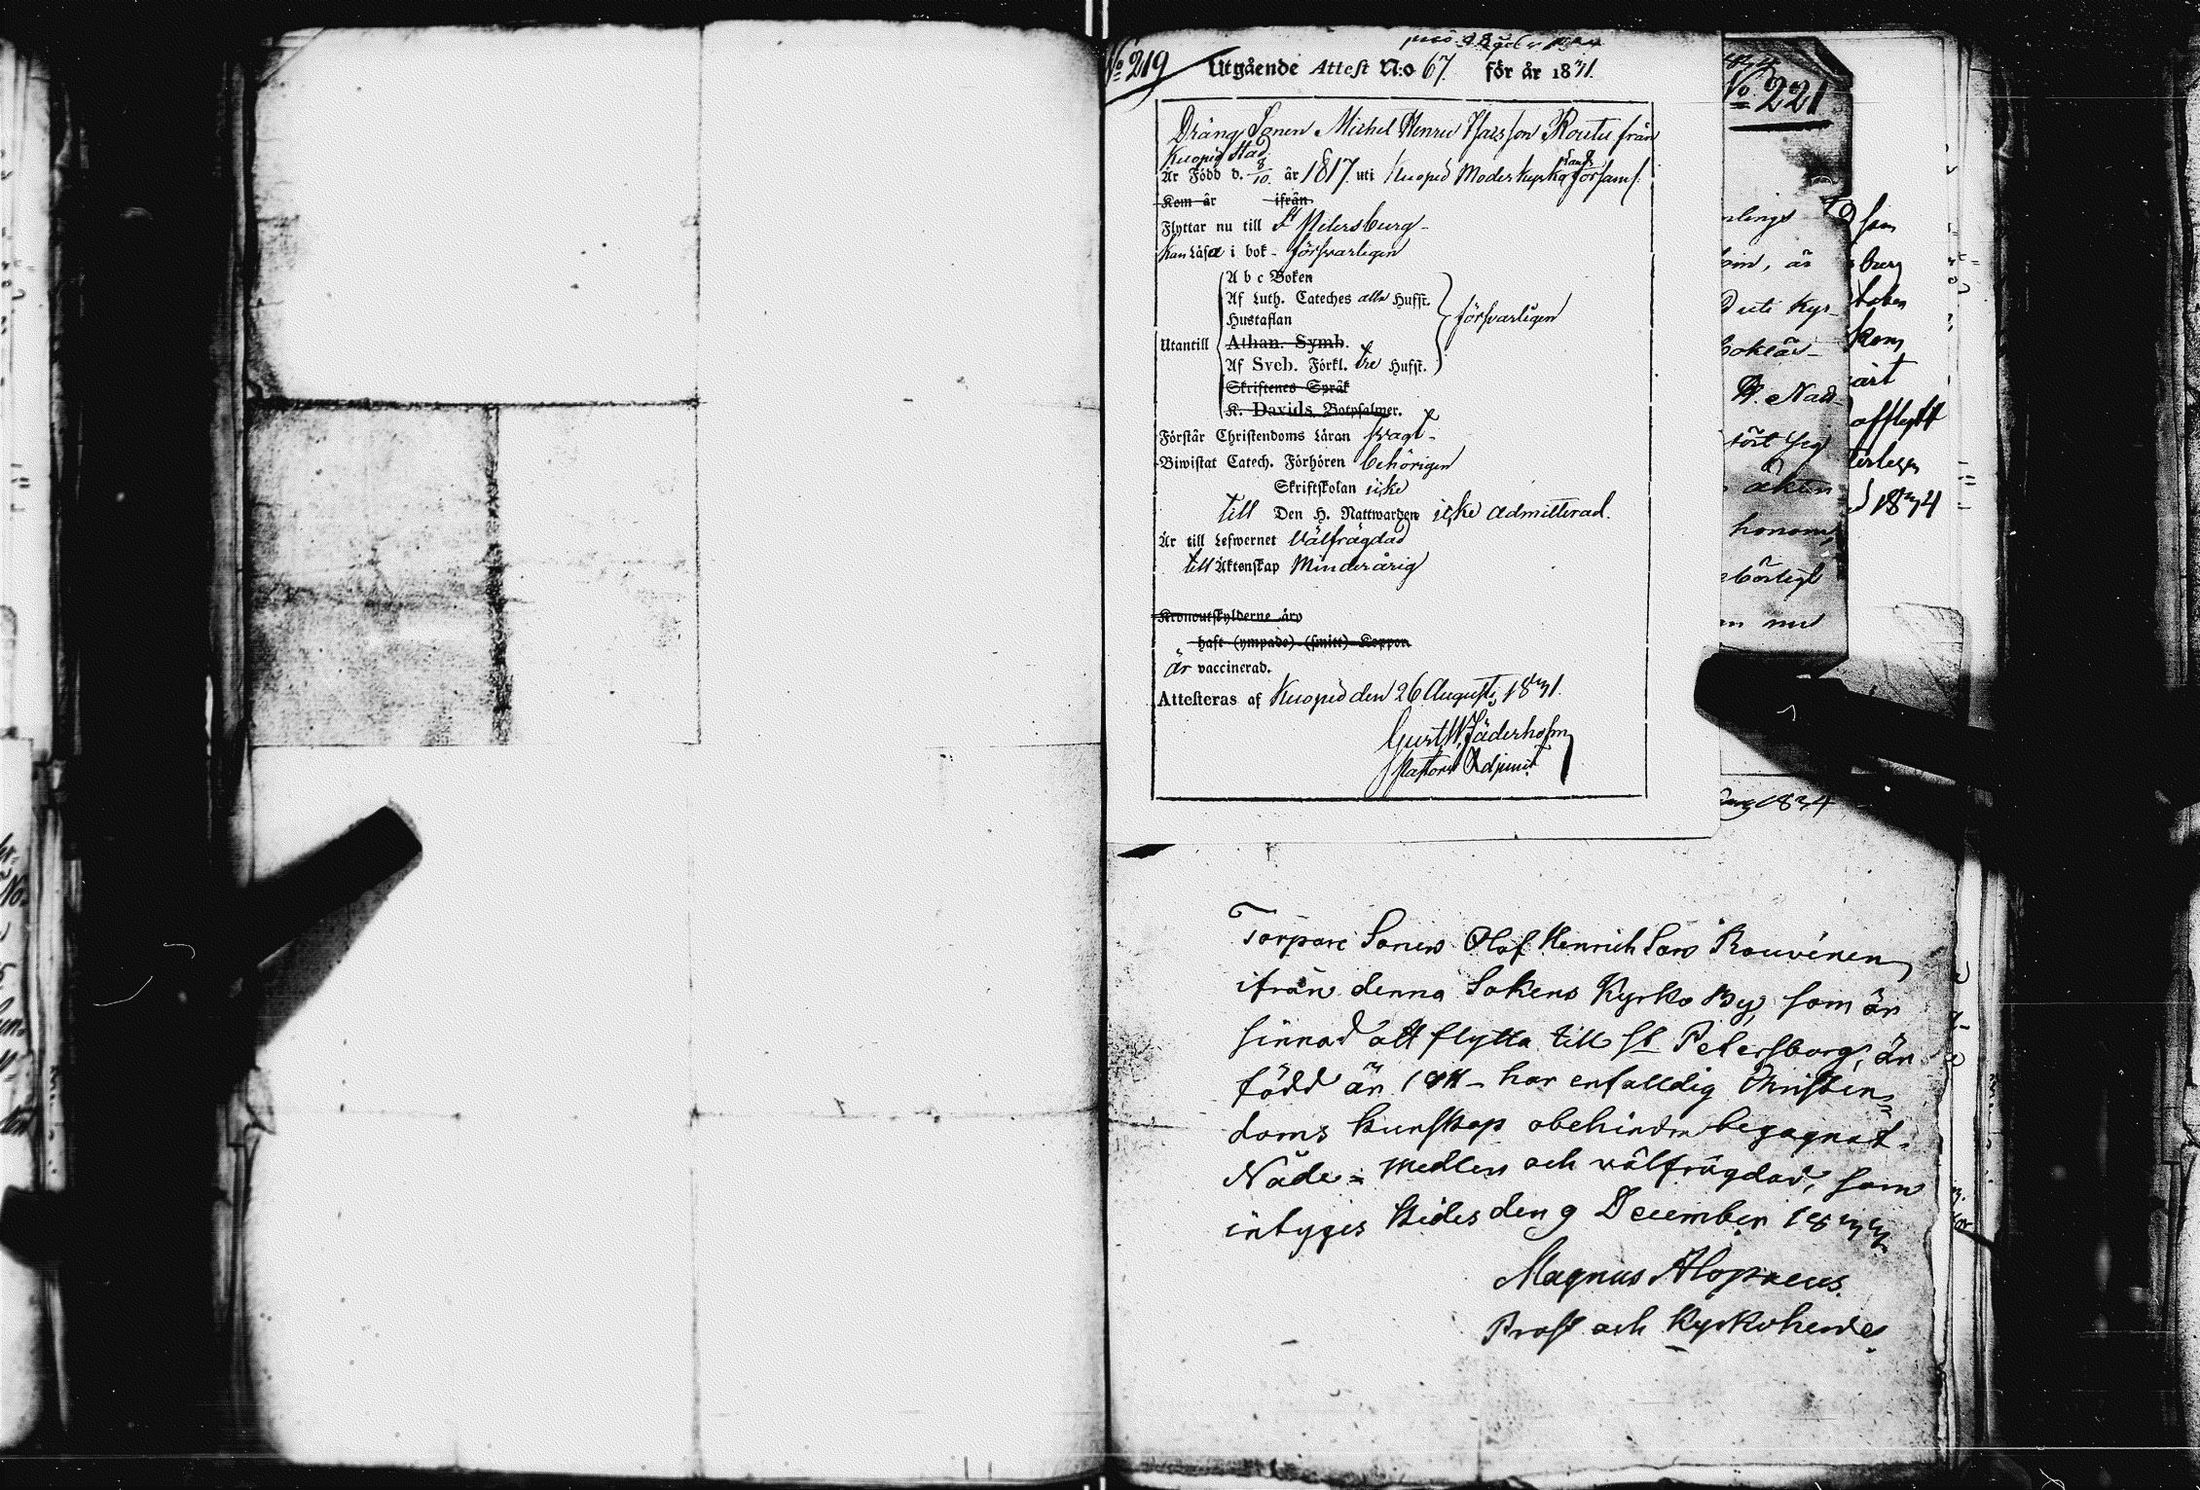 No 219
Utgående Attest N:o 67. för år 1831.
Dräng Sonen Michel Henric Hansson Routu från
Kuopio Stad.
Är Född d. 8/10. år 1817. uti Kuopio Moderkyrko Lands församl.
Kom år ifrån
Flyttar nu till St Petersburg.
Kan Läsa i bok - försvarligen
A b c Boken
Af Luth. Cateches alla Hufst.
Hustaflan
försvarligen
Utantill
Athan. Symb.
Af Sveb. Förkl. tre Hufst.
Skriftenes Språk
K. Davids Botpsalmer.
Förstår Christendoms Läran svagt.
Biwistat Catech. Förhören behörigen
Skriftskolan icke
till Den H. Nattwarden icke admitterad.
Är till Lefwernet Välfrägdad
till Äktenskap Minderårig
Kronoutskylderne äro
haft (ympade) (smitt) Koppor
är vaccinerad.
Attesteras af Kuopio den 26 Augusti 1831.
Gust. W. Jäderholm
Pastors Adjunct
No 221
uti Kyr-
honom,
nu
afflytt
1834
1834
Torpare Sonen Olof Henrich Son Rouvinen
ifrån denna Sokens Kyrko By, som är
sinnad att flytta till St Petersborg, är
född år - har enfalldig Christen=
doms kunskap obehindr begagnat
Nåde= Medlen och wälfrägdad, som
intyges Kides den 9 December 1833
Magnus Alopaeus.
Prost och Kyrkoherde